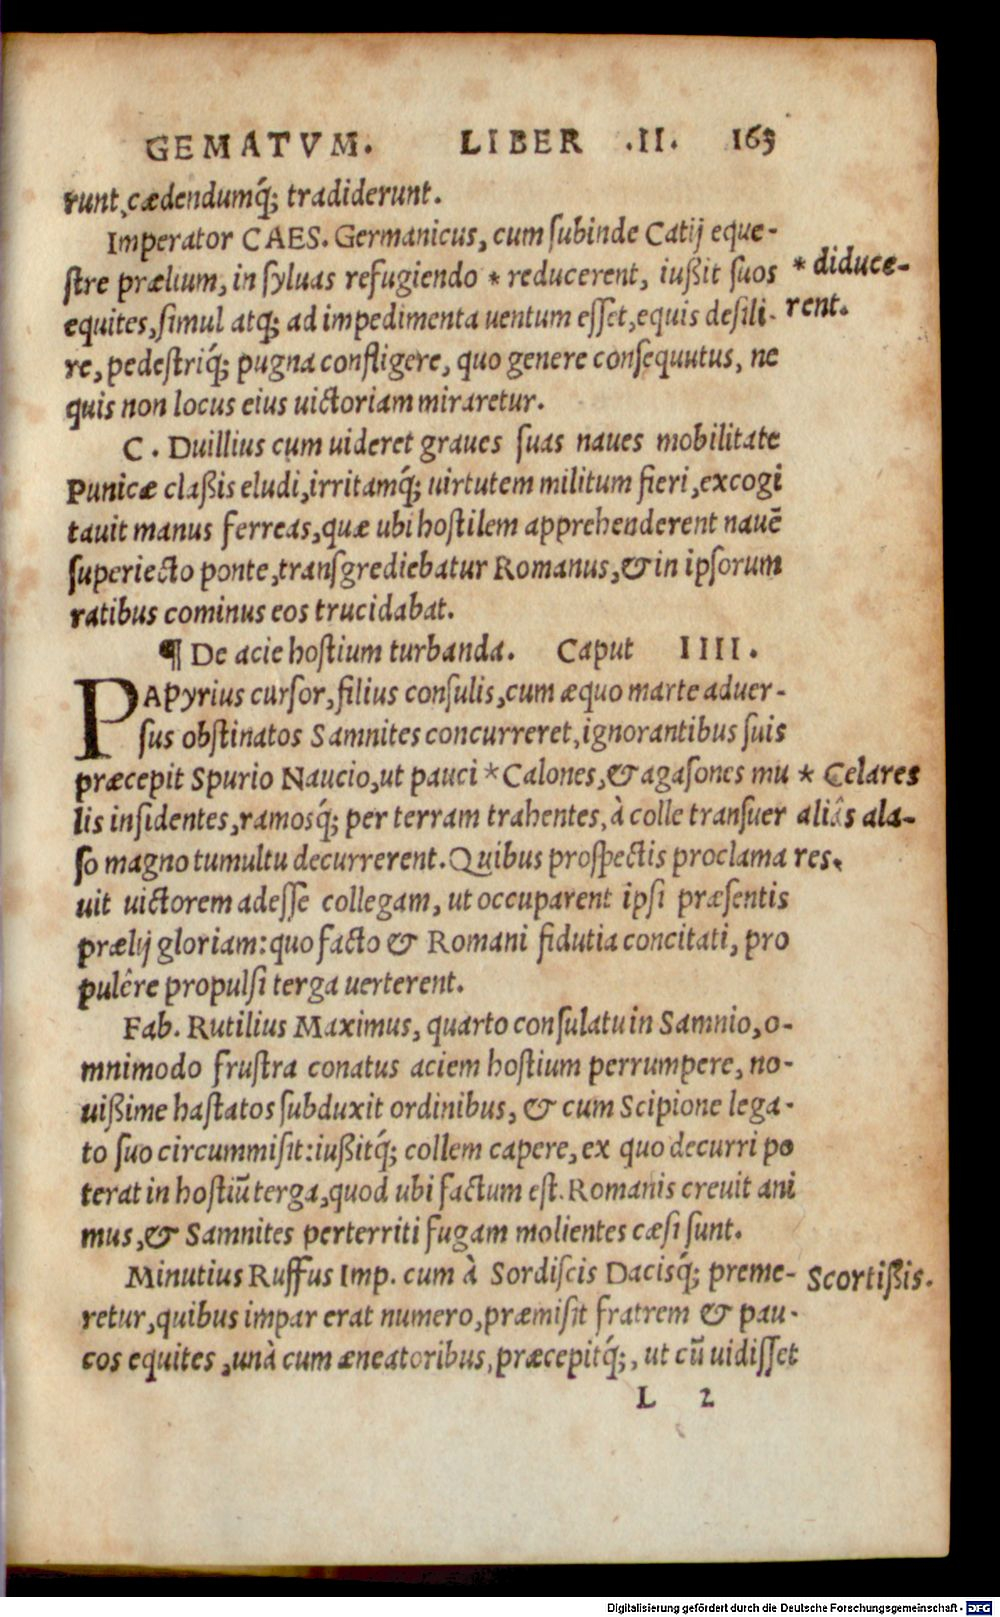 GEMATVM. LIBER .II. 163
runt, cædendumq́; tradiderunt.
Imperator CAES. Germanicus, cum ſubinde Catij eque-
ſtre prælium, in ſyluas refugiendo * reducerent, iußit ſuos
* diduce-
equites, ſimul atq; ad impedimenta uentum eſſet, equis deſili-
rent.
re, pedeſtriq́; pugna confligere, quo genere conſequutus, ne
quis non locus eius uictoriam miraretur.
C. Duillius cum uideret graues ſuas naues mobilitate
Punicæ claßis eludi, irritamq́; uirtutem militum fieri, excogi
tauit manus ferreas, quæ ubi hoſtilem apprehenderent nauē
ſuperiecto ponte, tranſgrediebatur Romanus, & in ipſorum
ratibus cominus eos trucidabat.
¶ De acie hoſtium turbanda. Caput IIII.
PAPyrius curſor, filius conſulis, cum æquo marte aduer-
ſus obſtinatos Samnites concurreret, ignorantibus ſuis
præcepit Spurio Naucio, ut pauci * Calones, & agaſones mu
* Celares
lis inſidentes, ramosq́; per terram trahentes, à colle tranſuer
aliâs ala-
ſo magno tumultu decurrerent. Quibus proſpectis proclama
res.
uit uictorem adeſſe collegam, ut occuparent ipſi præſentis
prælij gloriam: quo facto & Romani fidutia concitati, pro
pulêre propulſi terga uerterent.
Fab. Rutilius Maximus, quarto conſulatu in Samnio, o-
mnimodo fruſtra conatus aciem hoſtium perrumpere, no-
uißime haſtatos ſubduxit ordinibus, & cum Scipione lega-
to ſuo circummiſit: iußitq́; collem capere, ex quo decurri po
terat in hoſtiū terga, quod ubi factum eſt. Romanis creuit ani
mus, & Samnites perterriti fugam molientes cæſi ſunt.
Minutius Ruffus Imp. cum à Sordiſcis Dacisq́; preme-
Scortißis.
retur, quibus impar erat numero, præmiſit fratrem & pau-
cos equites, unà cum æneatoribus, præcepitq́;, ut cū uidiſſet
L 2
Digitalisierung gefördert durch die Deutsche Forschungsgemeinschaft - DFG